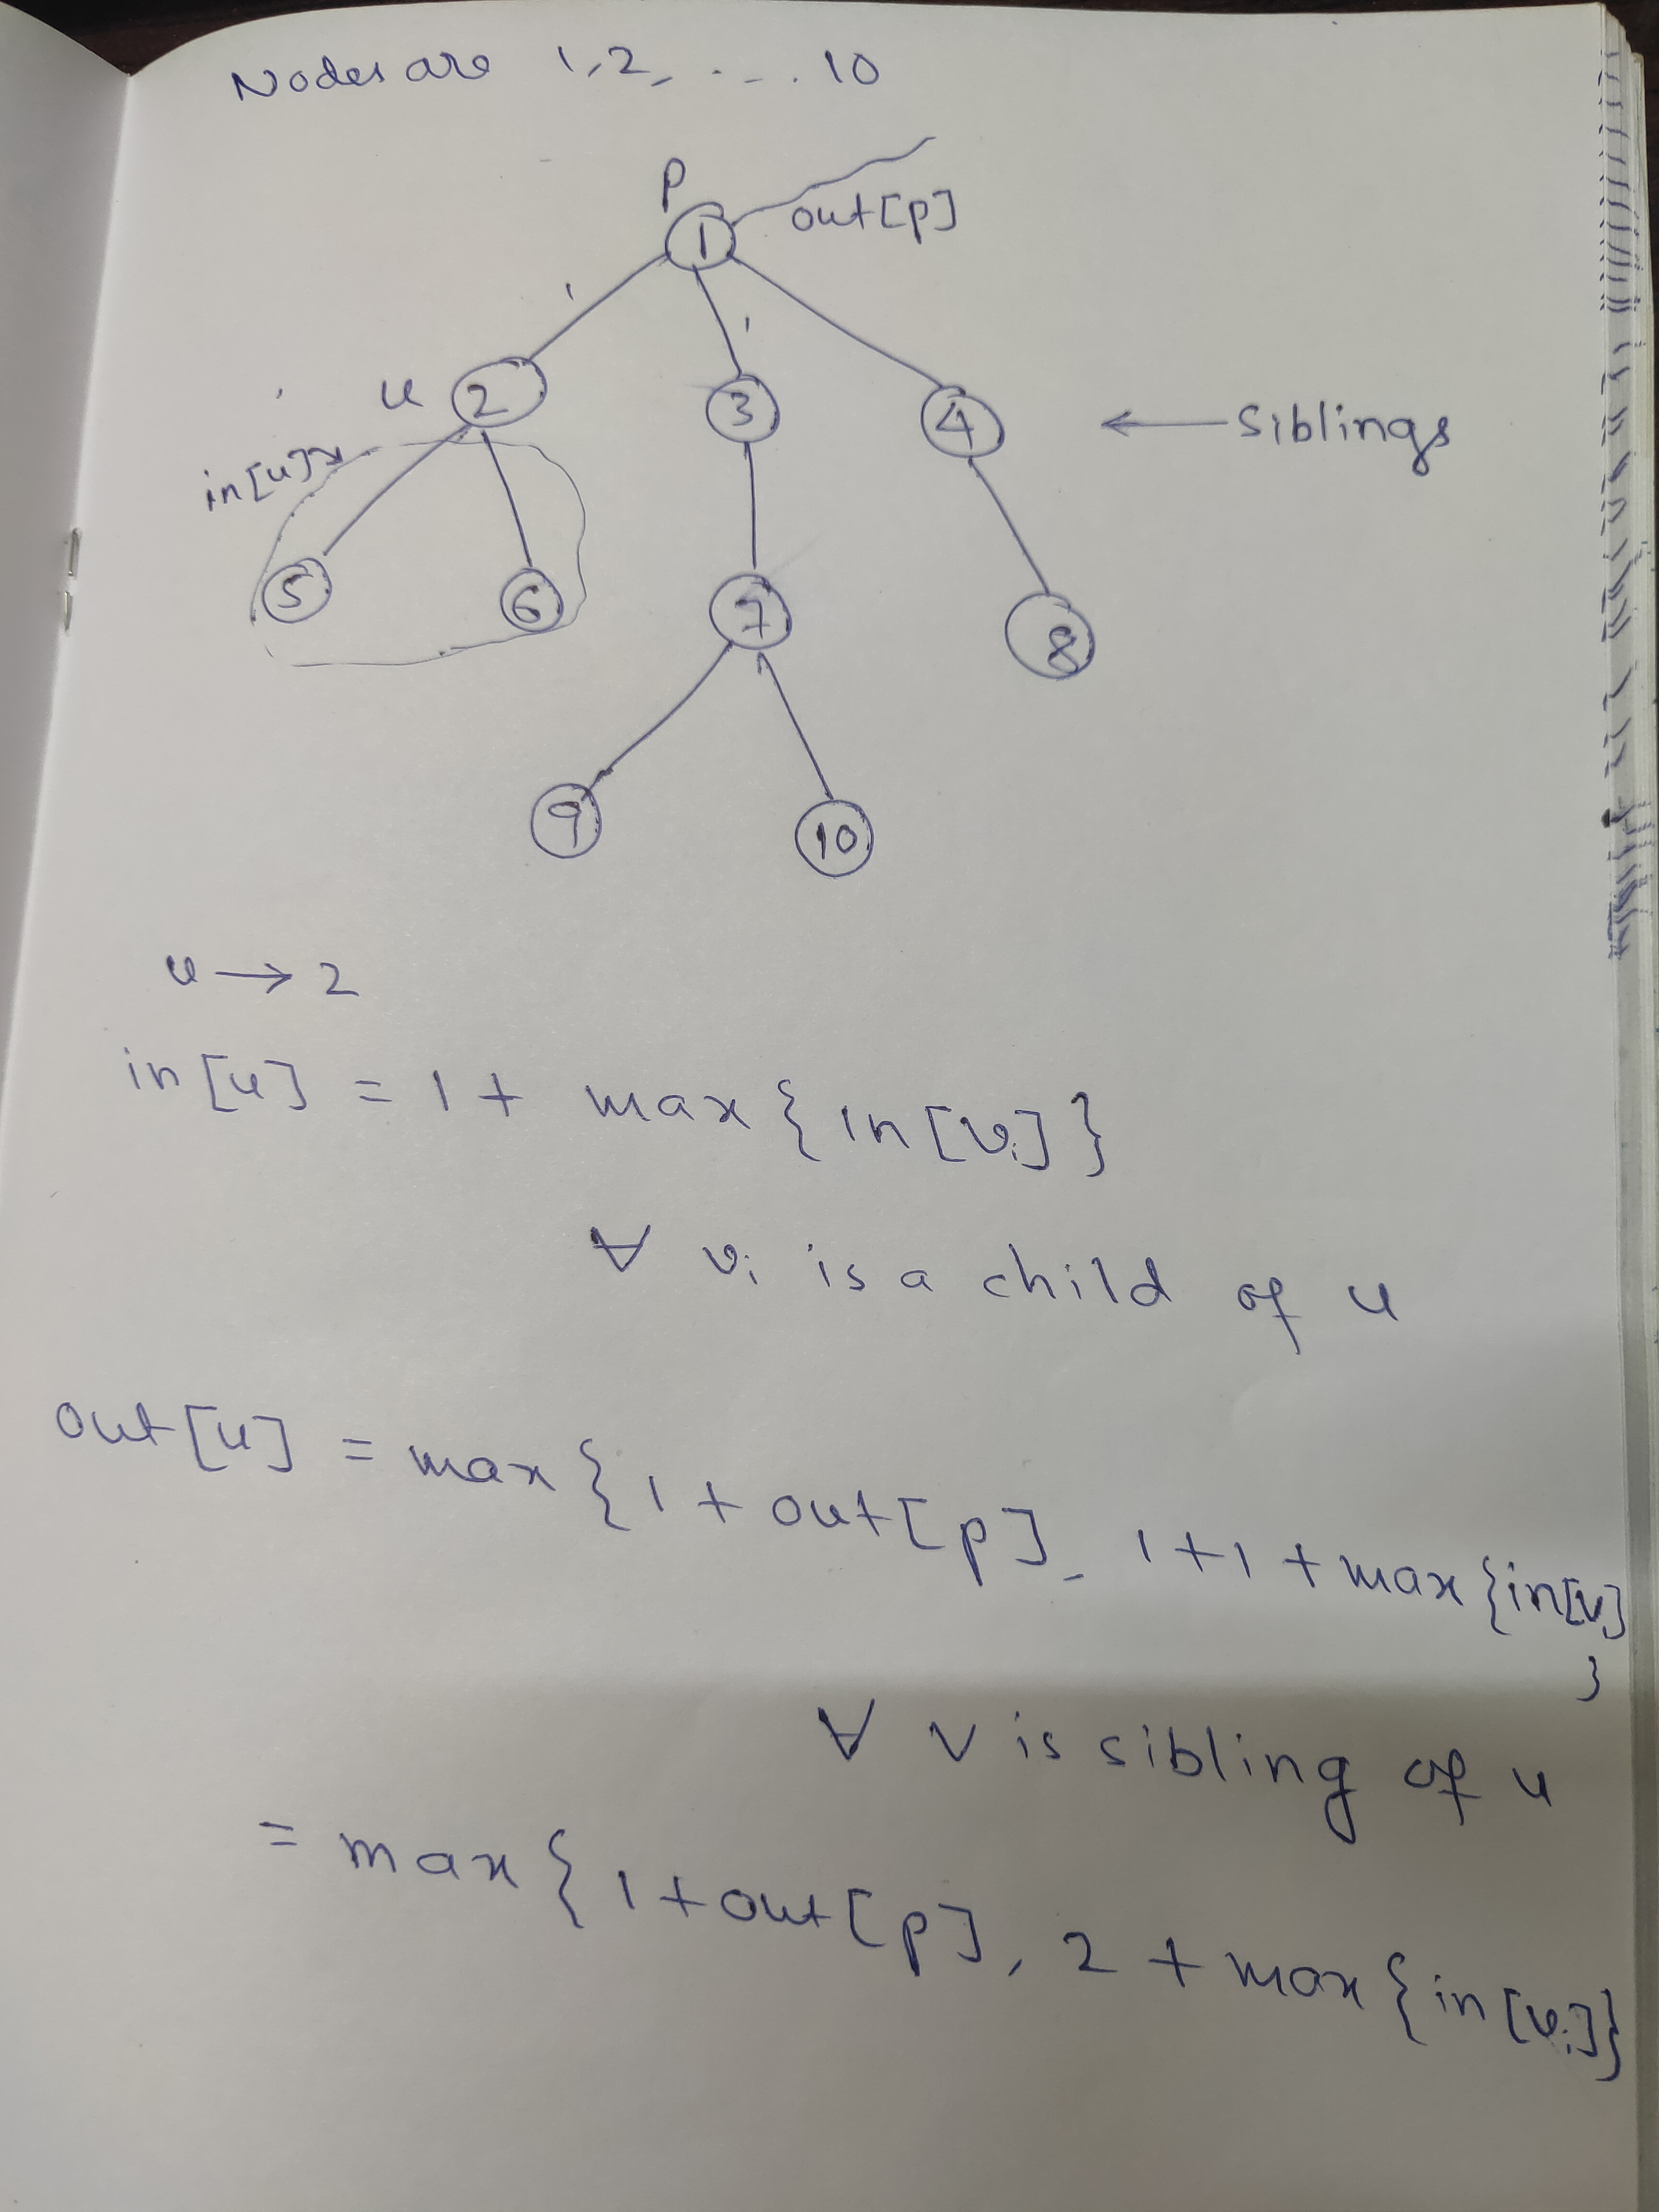 Nodes are 1, 2, - - - . 10
P
out[p]
1
u 2 3 4 ← Siblings
in[u]
5 6 7 8
9 10
u → 2
in[u] = 1 + max { in[vi] }
∀ vi is a child of u
out[u] = max { 1 + out[p], 1+1 + max {in[v]
}
∀ v is sibling of u
= max { 1 + out[p], 2 + max { in[vi]}